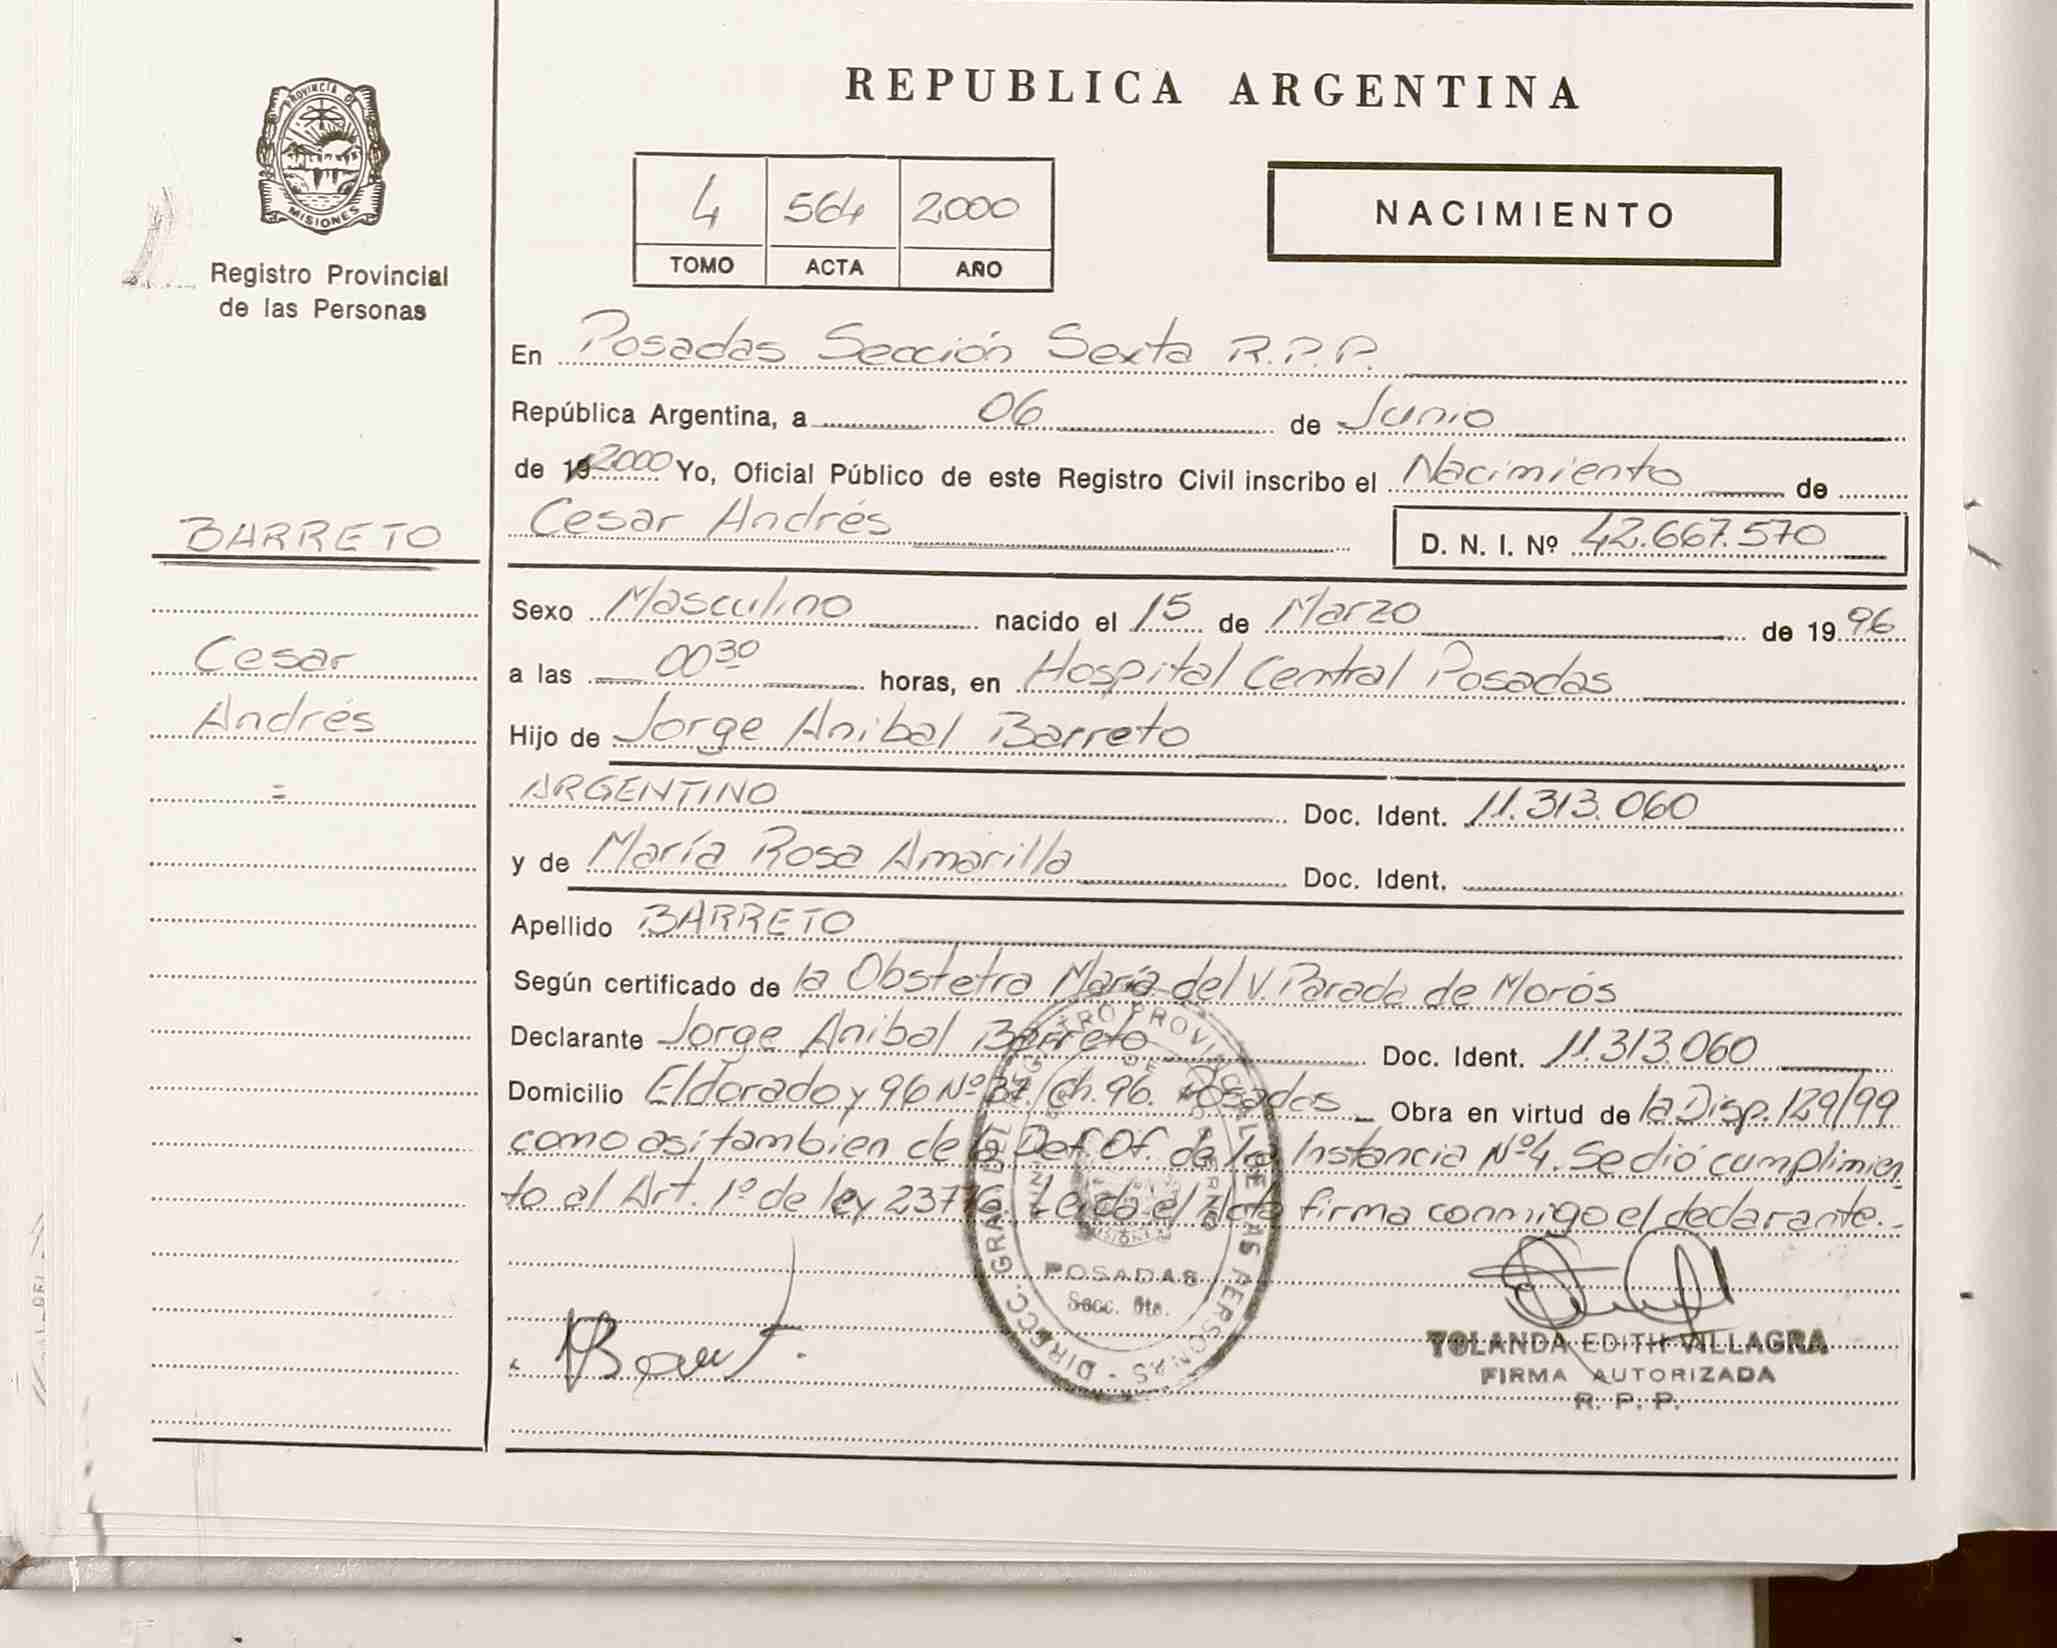 REPUBLICA ARGENTINA
PROVINCIA DE
MISIONES
Registro Provincial
de las Personas
4 564 2000
TOMO ACTA AÑO
NACIMIENTO
En Posadas Sección Sexta R.P.P.
República Argentina, a 06 de Junio
de 19 2000 Yo, Oficial Público de este Registro Civil inscribo el Nacimiento de
BARRETO
Cesar Andrés D. N. I. Nº 42.667.570
Sexo Masculino nacido el 15 de Marzo de 19 96
Cesar
a las 00 30 horas, en Hospital Central Posadas
Andrés
Hijo de Jorge Anibal Barreto
=
ARGENTINO Doc. Ident. 11.313.060
y de María Rosa Amarilla Doc. Ident.
Apellido BARRETO
Según certificado de la Obstetra María del V. Parada de Morós
Declarante Jorge Anibal Barreto Doc. Ident. 11.313.060
Domicilio Eldorado y 96 Nº 37. Ch. 96. Posadas Obra en virtud de la Disp. 129/99
como asi tambien de la Def. Of. de la Instancia Nº4. Se dió cumplimien
to al Art. 1º de ley 23776. Leida el Acta firma conmigo el declarante.-
DIRECC. GRAL. DEL REGISTRO PROVINCIAL DE LAS PERSONAS
POSADAS
Secc. 6ta.
YOLANDA EDITH VILLAGRA
FIRMA AUTORIZADA
R. P. P.